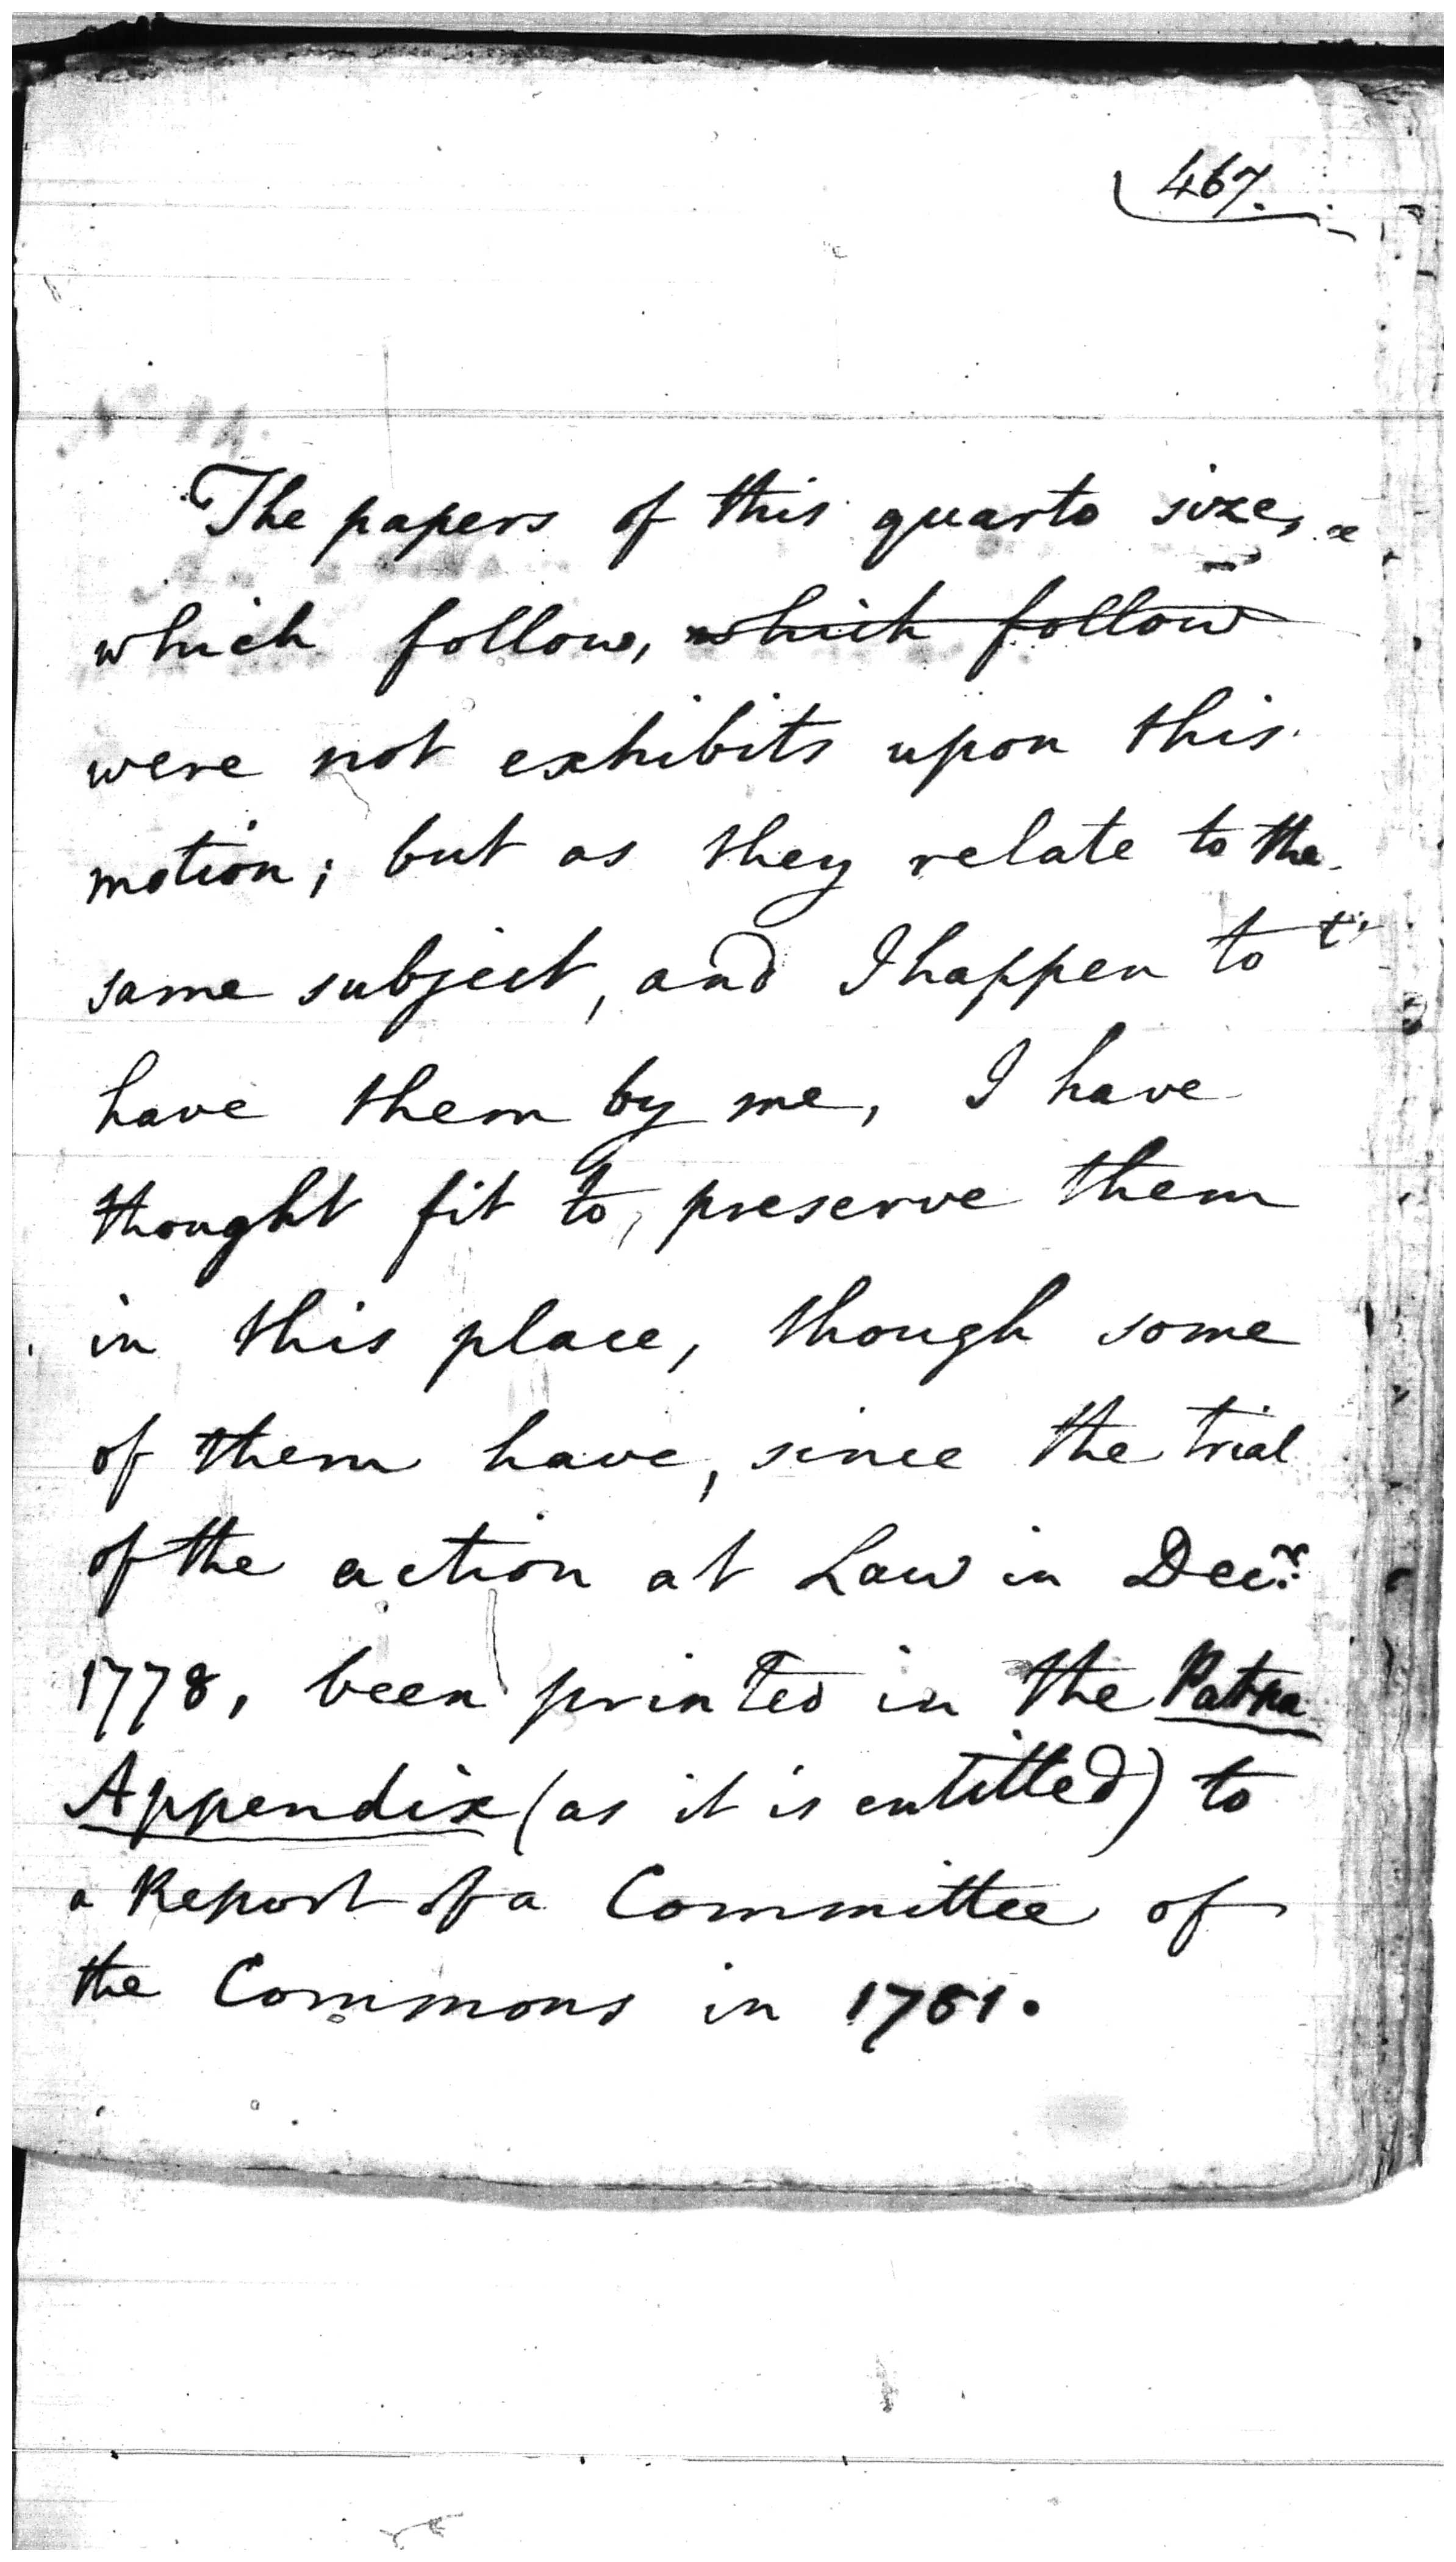 467.
The papers of this quarto size,
which follow, which follow
were not exhibits upon this
motion; but as they relate to the
same subject, and I happen to
have them by me, I have
thought fit to, preserve them
in this place, though some
of them have, since the trial
of the action at Law in Decr.
1778, been printed in the Patna
Appendix (as it is entitled) to
a Report of a Committee of
the Commons in 1781.